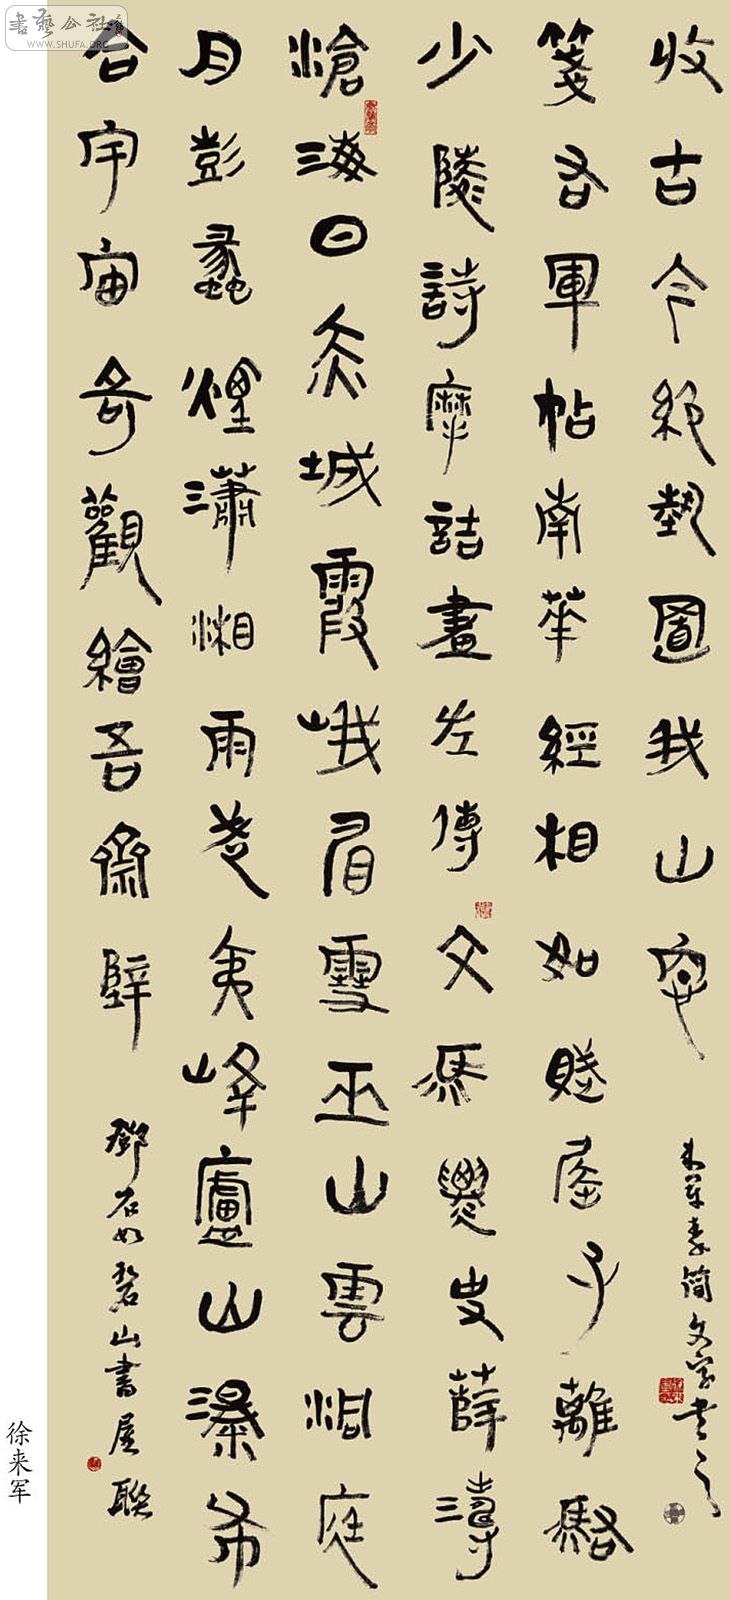 書藝公社
WWW.SHUFA.ORG
滄海日赤城霞峨眉雪巫山雲洞庭
月彭蠡煙瀟湘雨武夷峰廬山瀑布
合宇宙奇觀繪吾齋壁
鄧石如碧山書屋聯
少陵詩摩詰畫左傳文馬遷史薛濤
箋右軍帖南華經相如賦屈子離騷
收古今絕藝置我山窗
來軍秦簡文字書之
徐来军